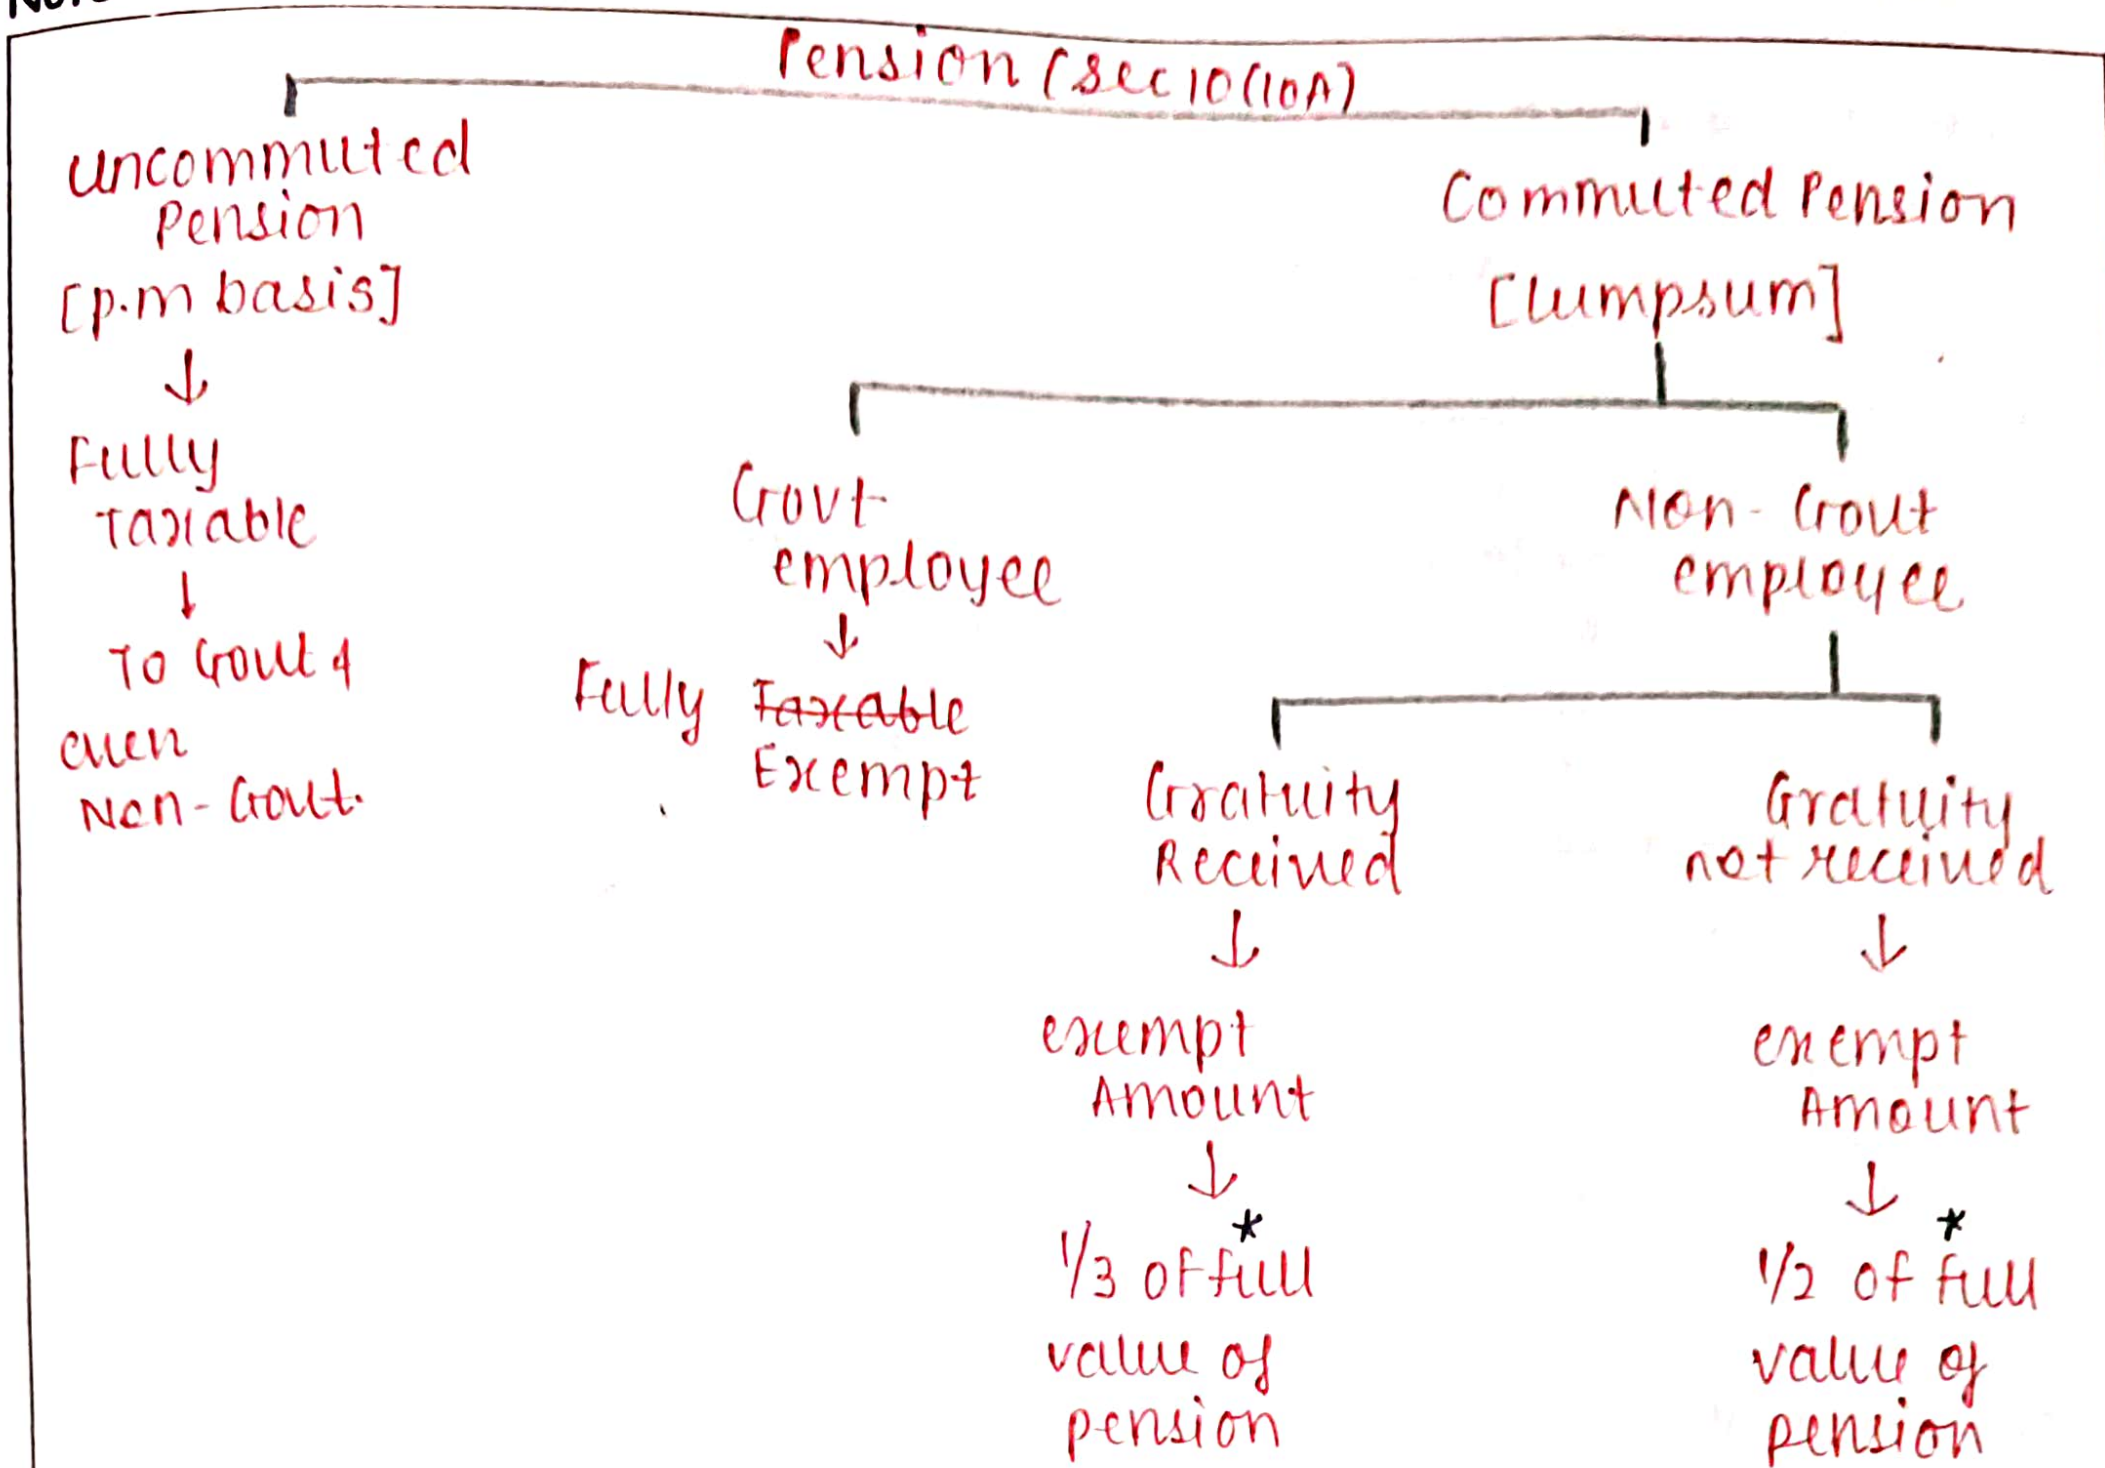 Pension (sec 10(10A)
uncommuted
Pension
[p.m basis]
↓
Fully
Taxable
↓
To Govt &
even
Non-Govt.
Commuted Pension
[Lumpsum]
Govt
employee
↓
Fully Taxable
Exempt
Non-Govt
employee
Gratuity
Received
↓
exempt
Amount
↓
*
1/3 of full
value of
pension
Gratuity
not received
↓
exempt
Amount
↓
*
1/2 of full
value of
pension